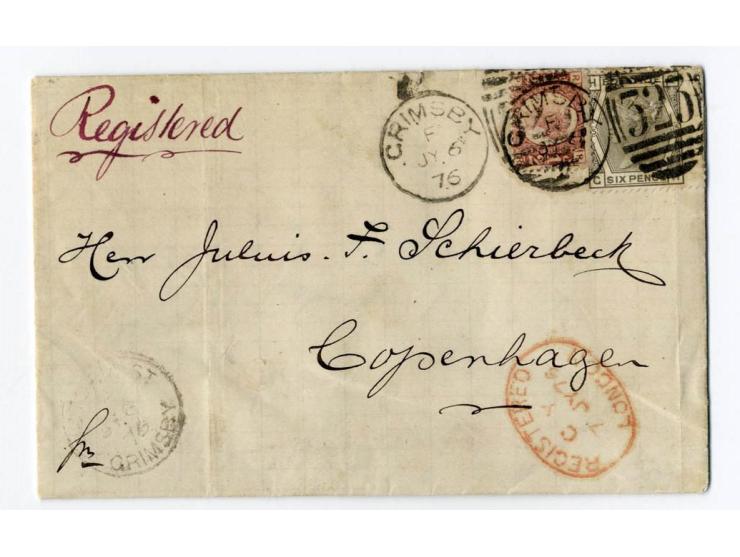 Registered
GRIMSBY
F
JY 6
76
GRIMSBY
F
323
SIX PENCE
Herr Juluis. F. Schierbeck
Copenhagen
REGISTERED LONDON
7 JY 76
C X
GRIMSBY